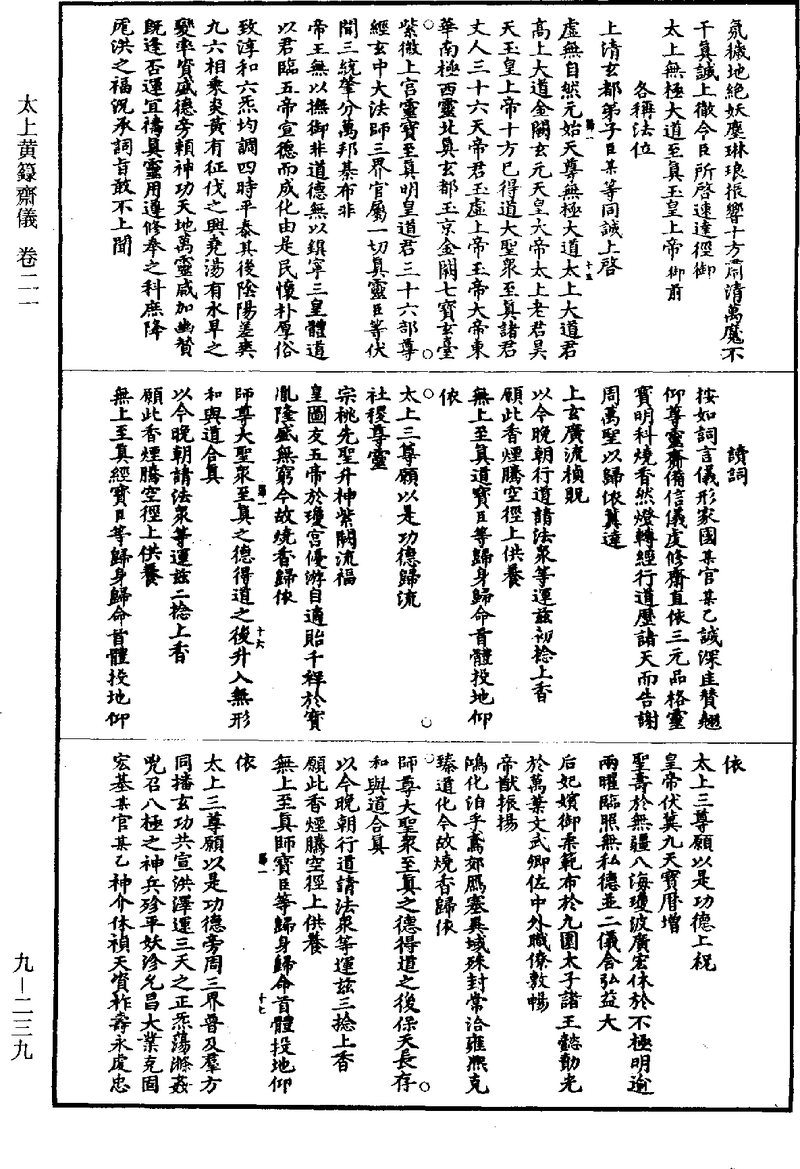 氛穢地絕妖塵琳琅振響十方肅清萬魔不
干真誠上徹今臣所啓速達徑御
太上無極大道至真玉皇上帝御前
各稱法位
上清玄都弟子臣某等同誠上啓
虛無自然元始天尊無極大道太上大道君
高上大道金闕玄元天皇大帝太上老君昊
天玉皇上帝十方已得道大聖衆至真諸君
丈人三十六天帝君玉虛上帝玉帝大帝東
華南極西靈北真玄都玉京金闕七寶玄臺
紫微上宮靈寶至真明皇道君三十六部尊
經玄中大法師三界官屬一切真靈臣等伏
聞三統肇分萬邦棊布非
帝王無以撫御非道德無以鎮寧三皇體道
以君臨五帝宣德而咸化由是民懷朴厚俗
致淳和六炁均調四時平泰其後陰陽差爽
九六相乘炎黃有征伐之興堯湯有水旱之
變率資盛德旁賴神功天地萬靈咸加幽贊
旣逢否運宜禱真靈用遵修奉之科庶降
厖洪之福況承詞旨敢不上聞
讀詞
按如詞言儀形家國某官某乙誠深匡贊翹
仰尊靈齋備信儀虔修齋直依三元品格靈
寶明科燒香然燈轉經行道歷諸天而告謝
周萬聖以歸依冀達
上玄廣流禎貺
以今晚朝行道請法衆等運茲初捻上香
願此香煙騰空徑上供養
無上至真道寶臣等歸身歸命首體投地仰
依
太上三尊願以是功德歸流
社稷尊靈
宗祧先聖升神紫闕流福
皇圖友五帝於瓊宮優游自適貽千釋於寶
胤隆盛無窮今故燒香歸依
師尊大聖衆至真之德得道之後升入無形
和與道合真
以今晚朝請法衆等運茲二捻上香
願此香煙騰空徑上供養
無上至真經寶臣等歸身歸命首體投地仰
依
太上三尊願以是功德上祝
皇帝伏冀九天寶曆增
聖壽於無疆八海瓊波廣宏休於不極明逾
兩曜臨照無私德並二儀含弘益大
后妃嬪御柔範布於九圍太子諸王懿勳光
於萬葉文武卿佐中外職僚敷暢
帝猷振揚
鴻化洎乎蒿郊鴈塞異域殊封常洽雍熙克
臻道化今故燒香歸依
師尊大聖衆至真之德得道之後保天長存
和與道合真
以今晚朝行道請法衆等運茲三捻上香
願此香煙騰空徑上供養
無上至真師寶臣等歸身歸命首體投地仰
依
太上三尊願以是功德旁周三界普及羣方
同播玄功共宣洪澤運三天之正炁蕩滌姦
兇召八極之神兵殄平妖沴允昌大業克固
宏基某官某乙神介休禎天資祚壽永虔忠
太上黄籙齋儀 卷二一
九—二三九